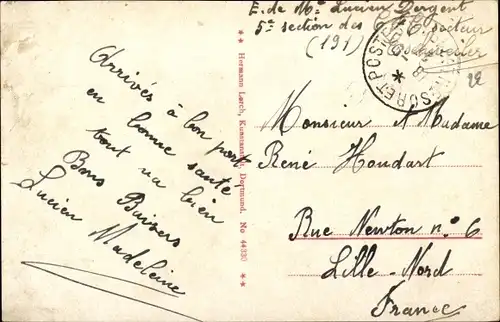 E. de Mr Lucien Dergent
5e section des
(191)
TRÉSOR ET POSTES
22
Arrivés à bon port
en bonne santé
tout va bien
Bons Baisers
Lucien Madeleine
** Hermann Lorch, Kunstanstalt, Dortmund. No 44330 **
Monsieur & Madame
René Houdart
Rue Newton no 6
Lille-Nord
France